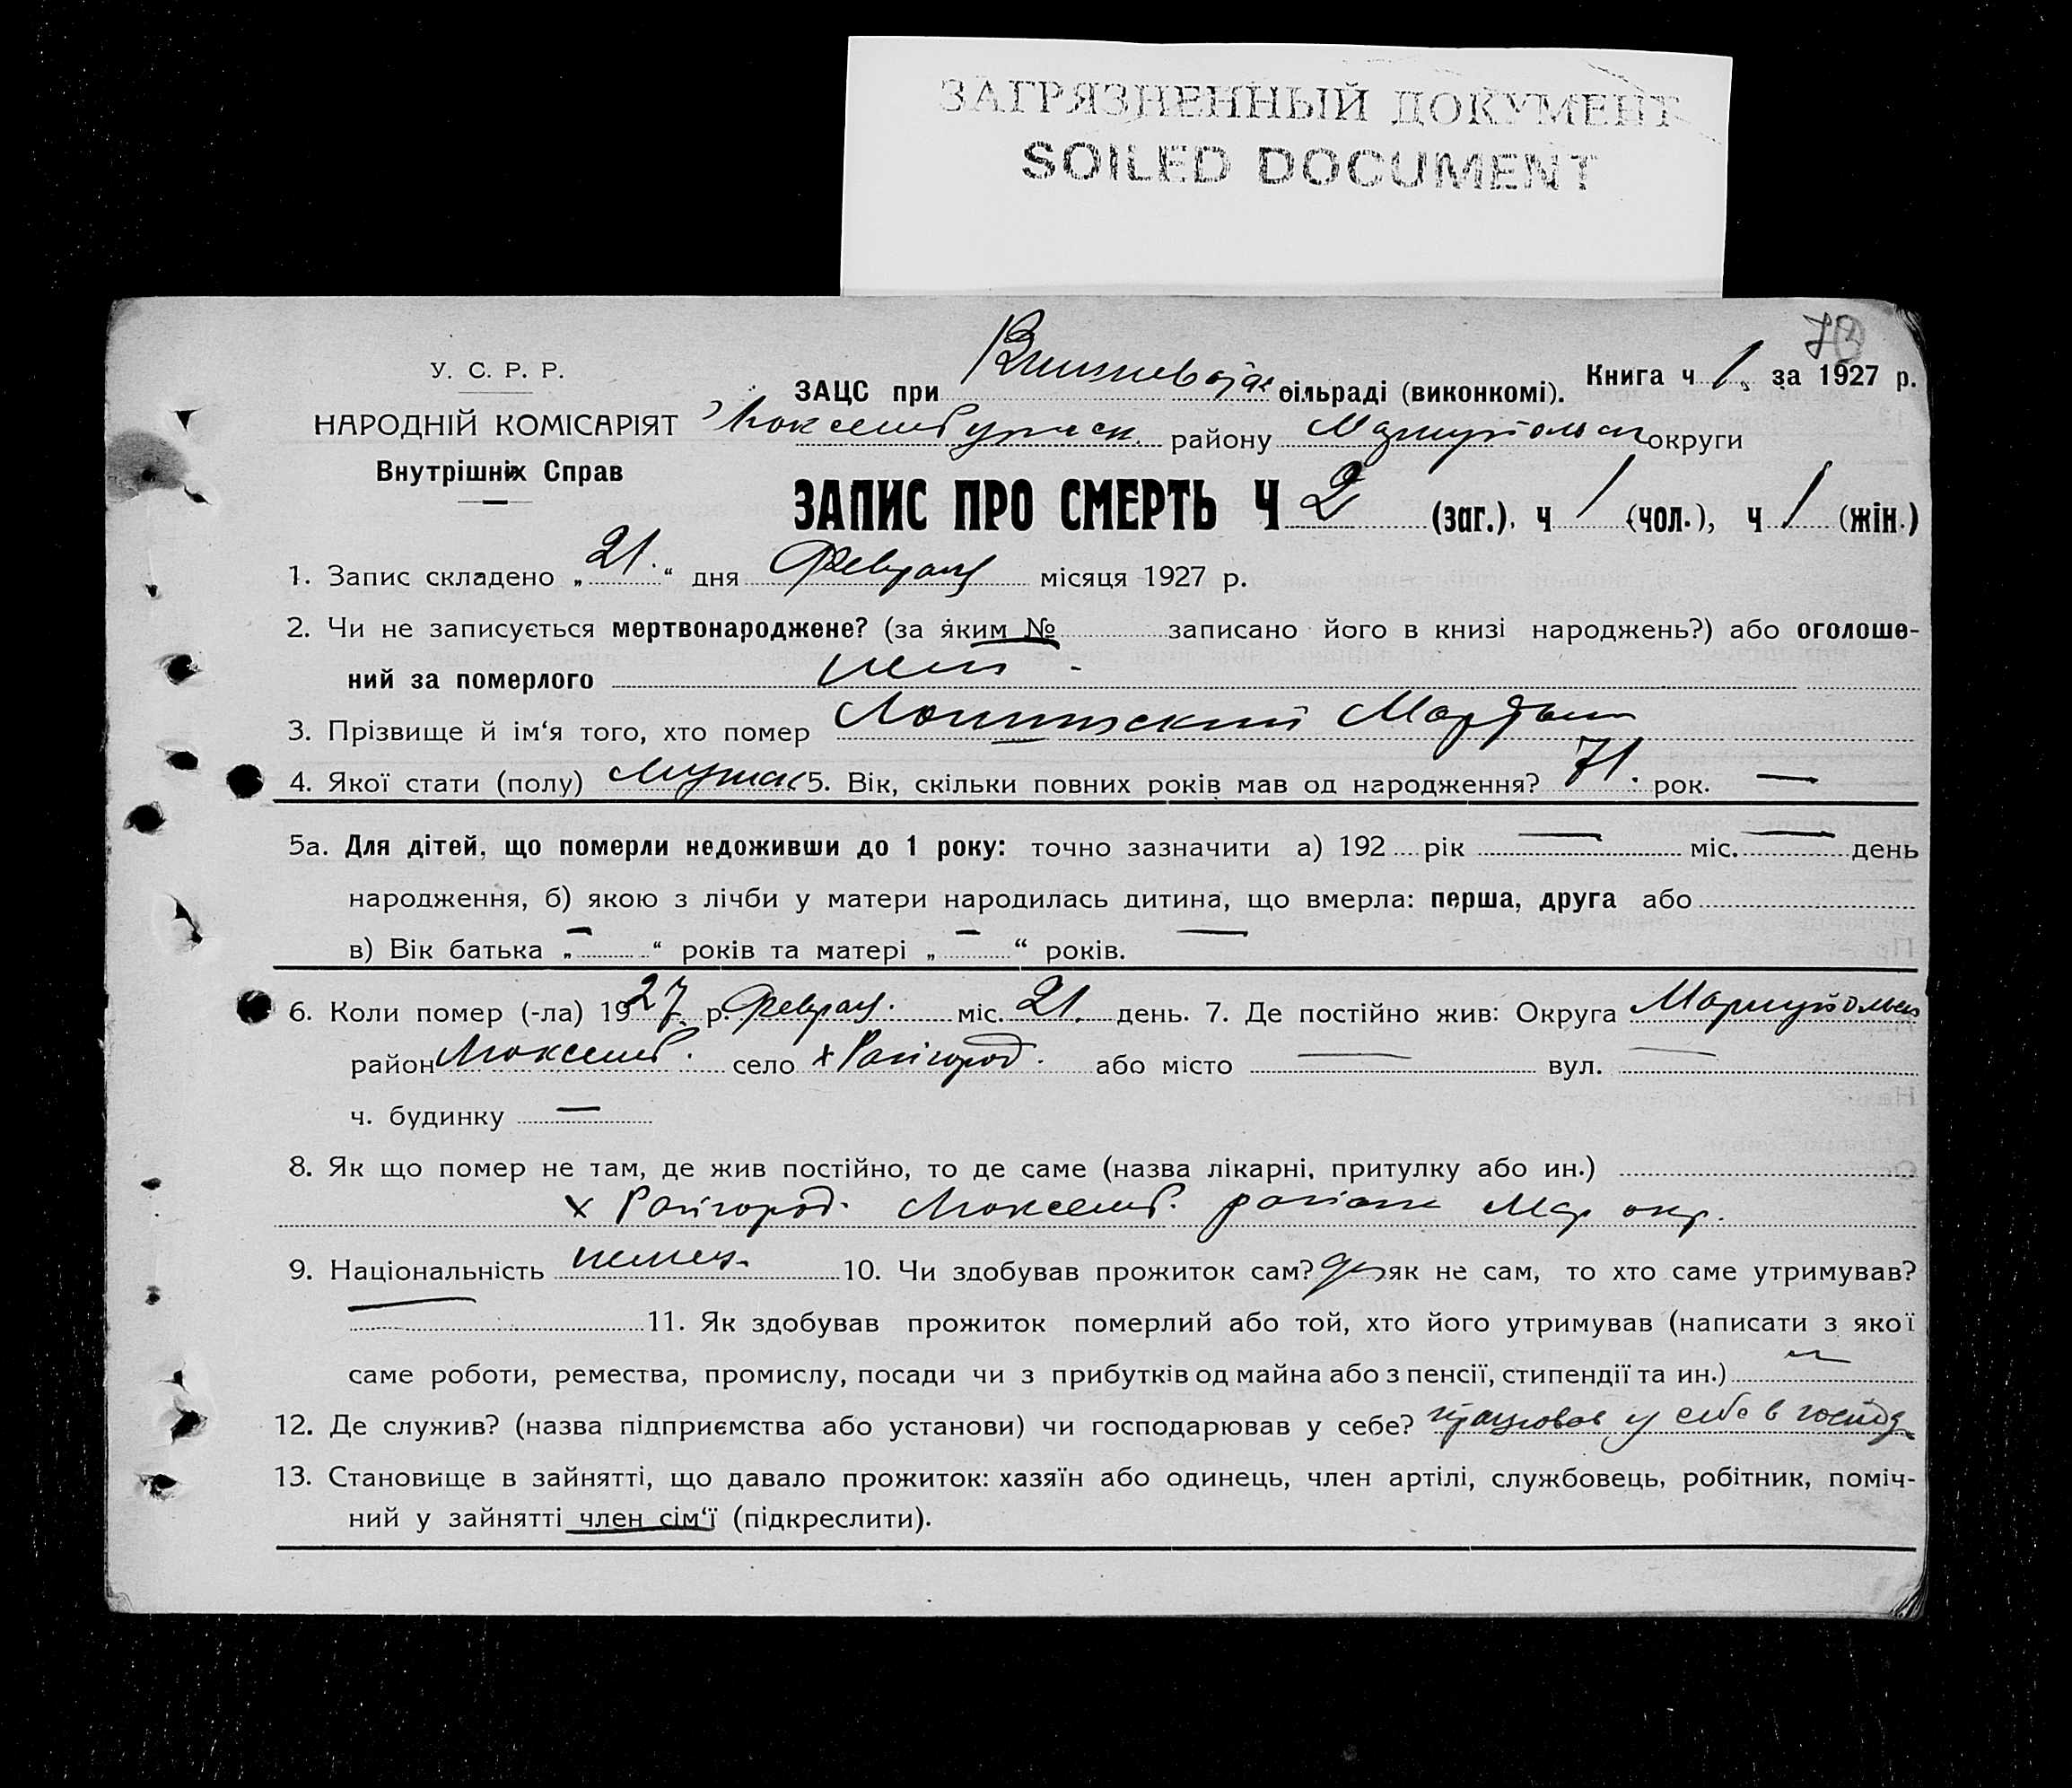 ЗАГРЯЗНЕННЫЙ ДОКУМЕНТ
SOILED DOCUMENT
У. С. Р. Р.
НАРОДНІЙ КОМІСАРІЯТ
Внутрішніх Справ
ЗАЦС при сільраді (виконкомі). Книга ч 1. за 1927 р.
Люксембургск. району Мариупольск округи
ЗАПИС ПРО СМЕРТЬ Ч 2 (заг.), ч 1 (чол.), ч 1 (жін.)
1. Запис складено „21.“ дня Февраля місяця 1927 р.
2. Чи не записується мертвонароджене? (за яким № записано його в книзі народжень?) або оголоше-
ний за померлого нет -
3. Прізвище й ім‘я того, хто помер Мартын
4. Якої стати (полу) Мужск 5. Вік, скільки повних років мав од народження? 71. рок. —
5а. Для дітей, що померли недоживши до 1 року: точно зазначити а) 192 рік — міс. — день
народження, б) якою з лічби у матери народилась дитина, що вмерла: перша, друга або
в) Вік батька „—“ років та матері „—“ років. —
6. Коли помер (-ла) 1927 р. Февраля. міс. 21. день. 7. Де постійно жив: Округа Мариупольск
район Люксемб. село х Райгород. або місто — вул. —
ч. будинку —
8. Як що помер не там, де жив постійно, то де саме (назва лікарні, притулку або ин.)
х Райгород. Люксемб. района Мар окр.
9. Національність немец. 10. Чи здобував прожиток сам? да як не сам, то хто саме утримував?
— 11. Як здобував прожиток померлий або той, хто його утримував (написати з якої
саме роботи, ремества, промислу, посади чи з прибутків од майна або з пенсії, стипендії та ин.)
12. Де служив? (назва підприємства або установи) чи господарював у себе? працював у себе в господ
13. Становище в зайнятті, що давало прожиток: хазяїн або одинець, член артілі, службовець, робітник, поміч-
ний у зайнятті член сім‘ї (підкреслити).